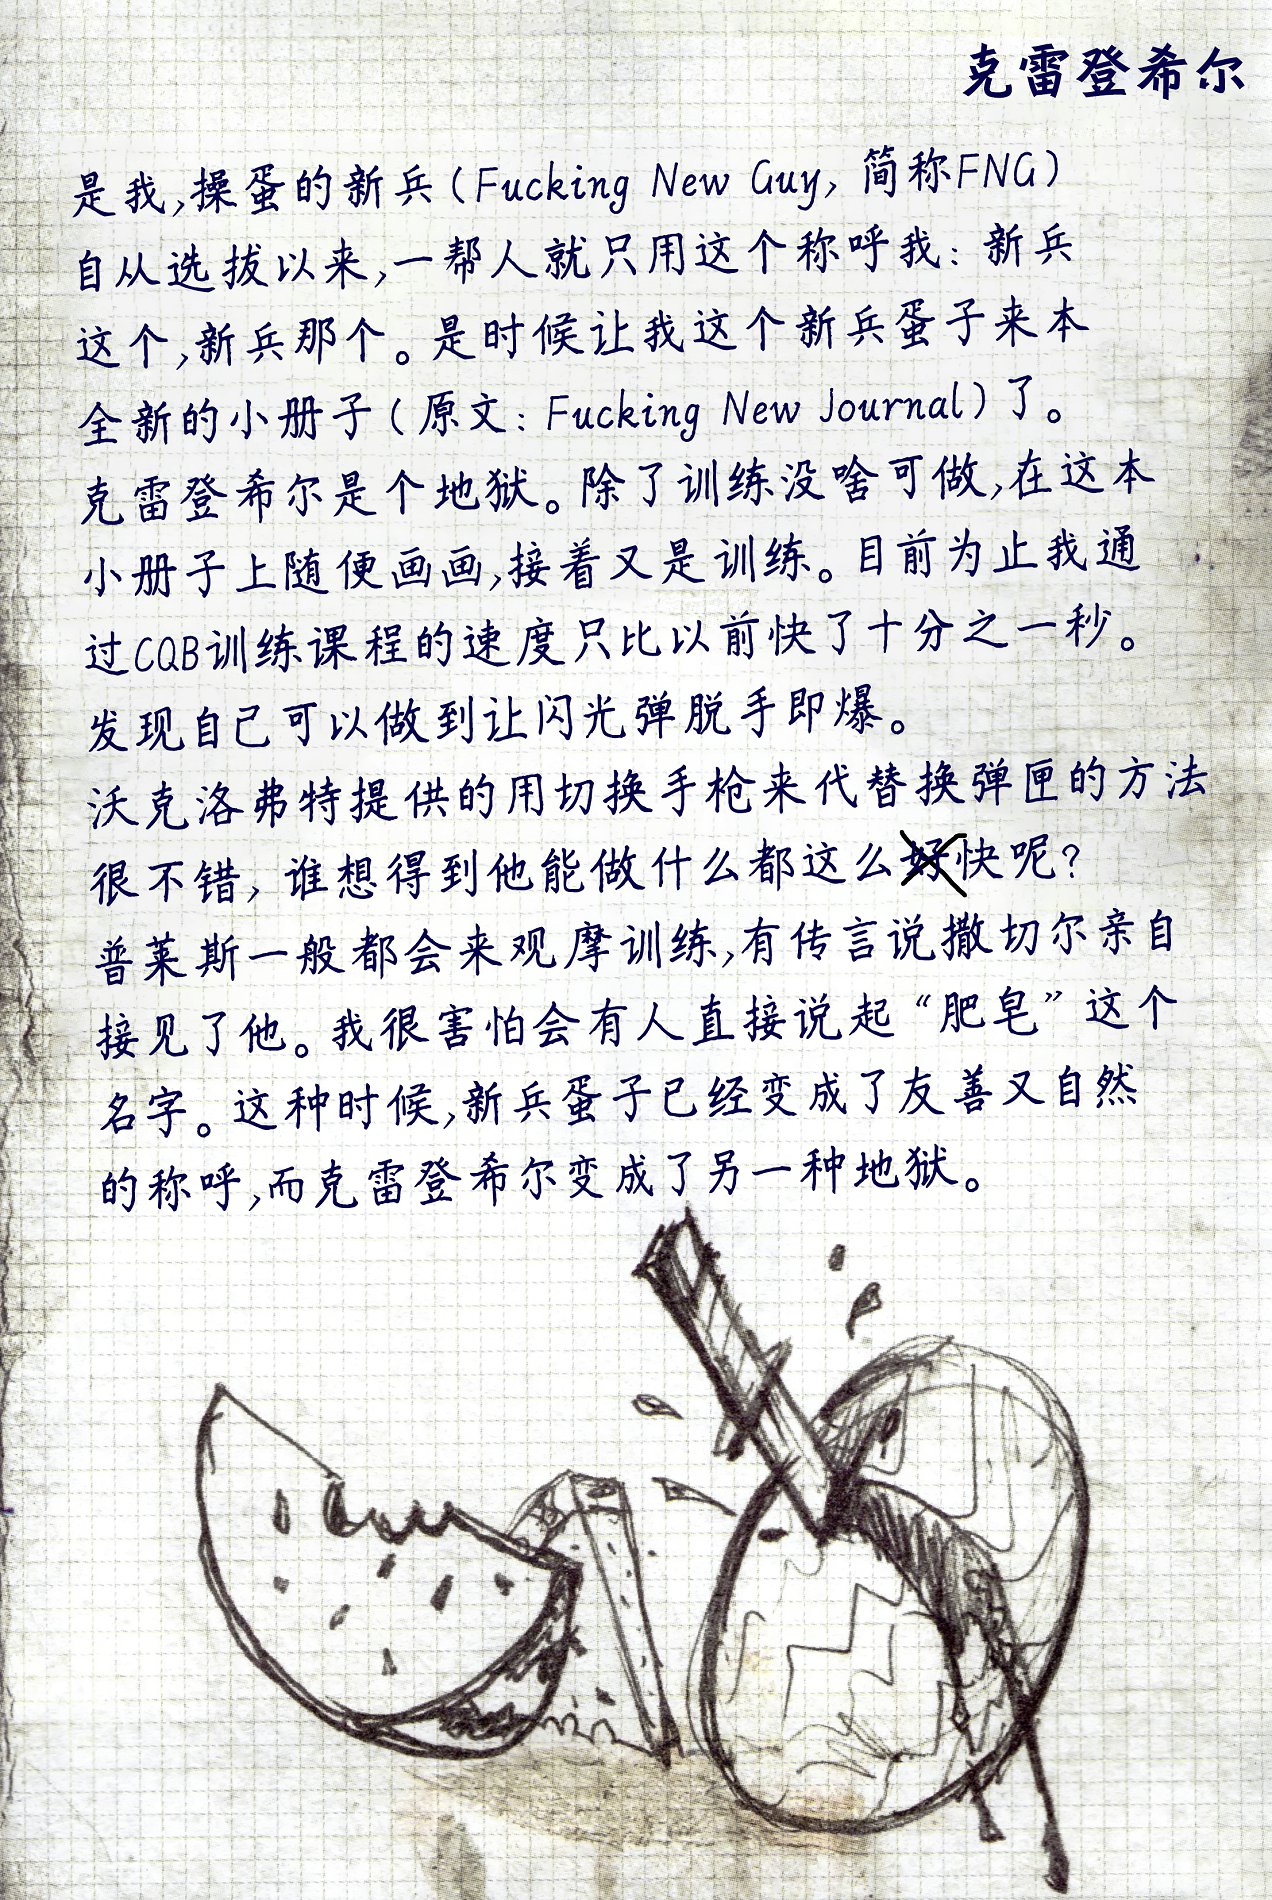 克雷登希尔
是我,操蛋的新兵(Fucking New Guy, 简称FNG)
自从选拔以来,一帮人就只用这个称呼我: 新兵
这个,新兵那个。是时候让我这个新兵蛋子来本
全新的小册子(原文: Fucking New Journal)了。
克雷登希尔是个地狱。除了训练没啥可做,在这本
小册子上随便画画,接着又是训练。目前为止我通
过CQB训练课程的速度只比以前快了十分之一秒。
发现自己可以做到让闪光弹脱手即爆。
沃克洛弗特提供的用切换手枪来代替换弹匣的方法
很不错, 谁想得到他能做什么都这么好快呢?
普莱斯一般都会来观摩训练,有传言说撒切尔亲自
接见了他。我很害怕会有人直接说起“肥皂”这个
名字。这种时候,新兵蛋子已经变成了友善又自然
的称呼,而克雷登希尔变成了另一种地狱。